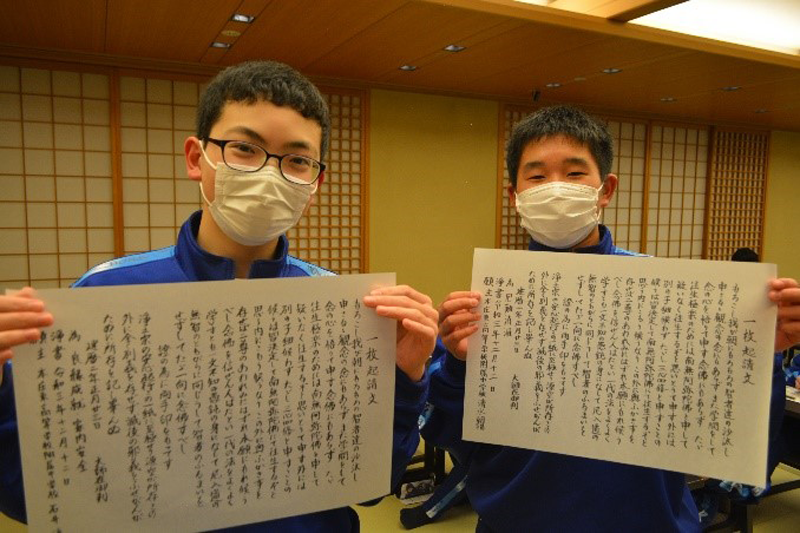 一枚起請文
もろこし我が朝にもろもろの智者達の沙汰し
申さるゝ観念の念にもあらず又学問をして
念の心を悟りて申す念佛にもあらず たゞ
往生極楽のためには南無阿弥陀佛と申して
疑いなく往生するぞと思いとりて申す外には
別の子細候わず たゞし三心四修と申すことの
候は皆決定して南無阿弥陀佛にて往生するぞと
思う内にこもり候なり この外に奥ふかき事を
存ぜば二尊のあわれみにはずれ本願にもれ候う
べし 念佛を信ぜん人はたとい一代の法をよくよく
学すとも一文不知の愚鈍の身になして尼入道の
無智のともがらに同じうして智者のふるまいを
せずしてたゞ一向に念佛すべし
證の為に両手印をもってす
浄土宗の安心起行この一紙に至極せり源空が所存この
外に全く別義を存ぜず滅後の邪義をふせがんが
ために所存を記し畢んぬ
建暦二年正月二十三日 大師在御判
為 良縁成就 家内安全
浄書 令和三年十二月十二日
願主 本庄東高等学校附属中学校
一枚起請文
もろこし我が朝にもろもろの智者達の沙汰し
申さるゝ観念の念にもあらず又学問をして
念の心を悟りて申す念佛にもあらず たゞ
往生極楽のためには南無阿弥陀佛と申して
疑いなく往生するぞと思いとりて申す外には
別の子細候わず たゞし三心四修と申すことの
候は皆決定して南無阿弥陀佛にて往生するぞと
思う内にこもり候なり この外に奥ふかき事を
存ぜば二尊のあわれみにはずれ本願にもれ候う
べし 念佛を信ぜん人はたとい一代の法をよくよく
学すとも一文不知の愚鈍の身になして尼入道の
無智のともがらに同じうして智者のふるまいを
せずしてたゞ一向に念佛すべし
證の為に両手印をもってす
浄土宗の安心起行この一紙に至極せり源空が所存この
外に全く別義を存ぜず滅後の邪義をふせがんが
ために所存を記し畢んぬ
建暦二年正月二十三日 大師在御判
浄書 令和三年十二月十二日
願主 本庄東高等学校附属中学校